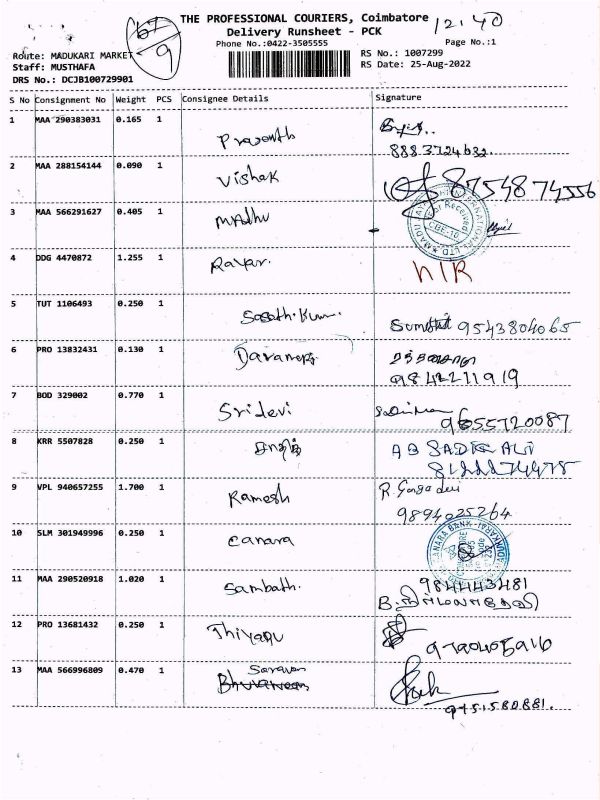 THE PROFESSIONAL COURIERS, Coimbatore
12:40
Delivery Runsheet - PCK
Phone No.:0422-3505555
Page No.:1
67/9
Route: MADUKARI MARKET
RS No.: 1007299
Staff: MUSTHAFA
RS Date: 25-Aug-2022
DRS No.: DCJB100729901
S No Consignment No Weight PCS Consignee Details Signature
1 MAA 290383031 0.165 1 Prasanth
8883724632
2 MAA 288154144 0.090 1 Vishak 8754874556
3 MAA 566291627 0.405 1 Madhu
4 DDG 4470872 1.255 1 Rayar. N/R
5 TUT 1106493 0.250 1 9543804065
6 PRO 13832431 0.130 1
9842211919
7 BOD 329002 0.770 1 Sridevi
9655720087
8 KRR 5507828 0.250 1 AB SADIQ ALI
9 VPL 940657255 1.700 1 Ramesh R. Gangadevi
9894025264
10 SLM 301949996 0.250 1 Canara
CANARA BANK
11 MAA 290520918 1.020 1 Sambath. 9844443481
12 PRO 13681432 0.250 1 Thiyagu
13 MAA 566996809 0.470 1 Saravan
9751580881.